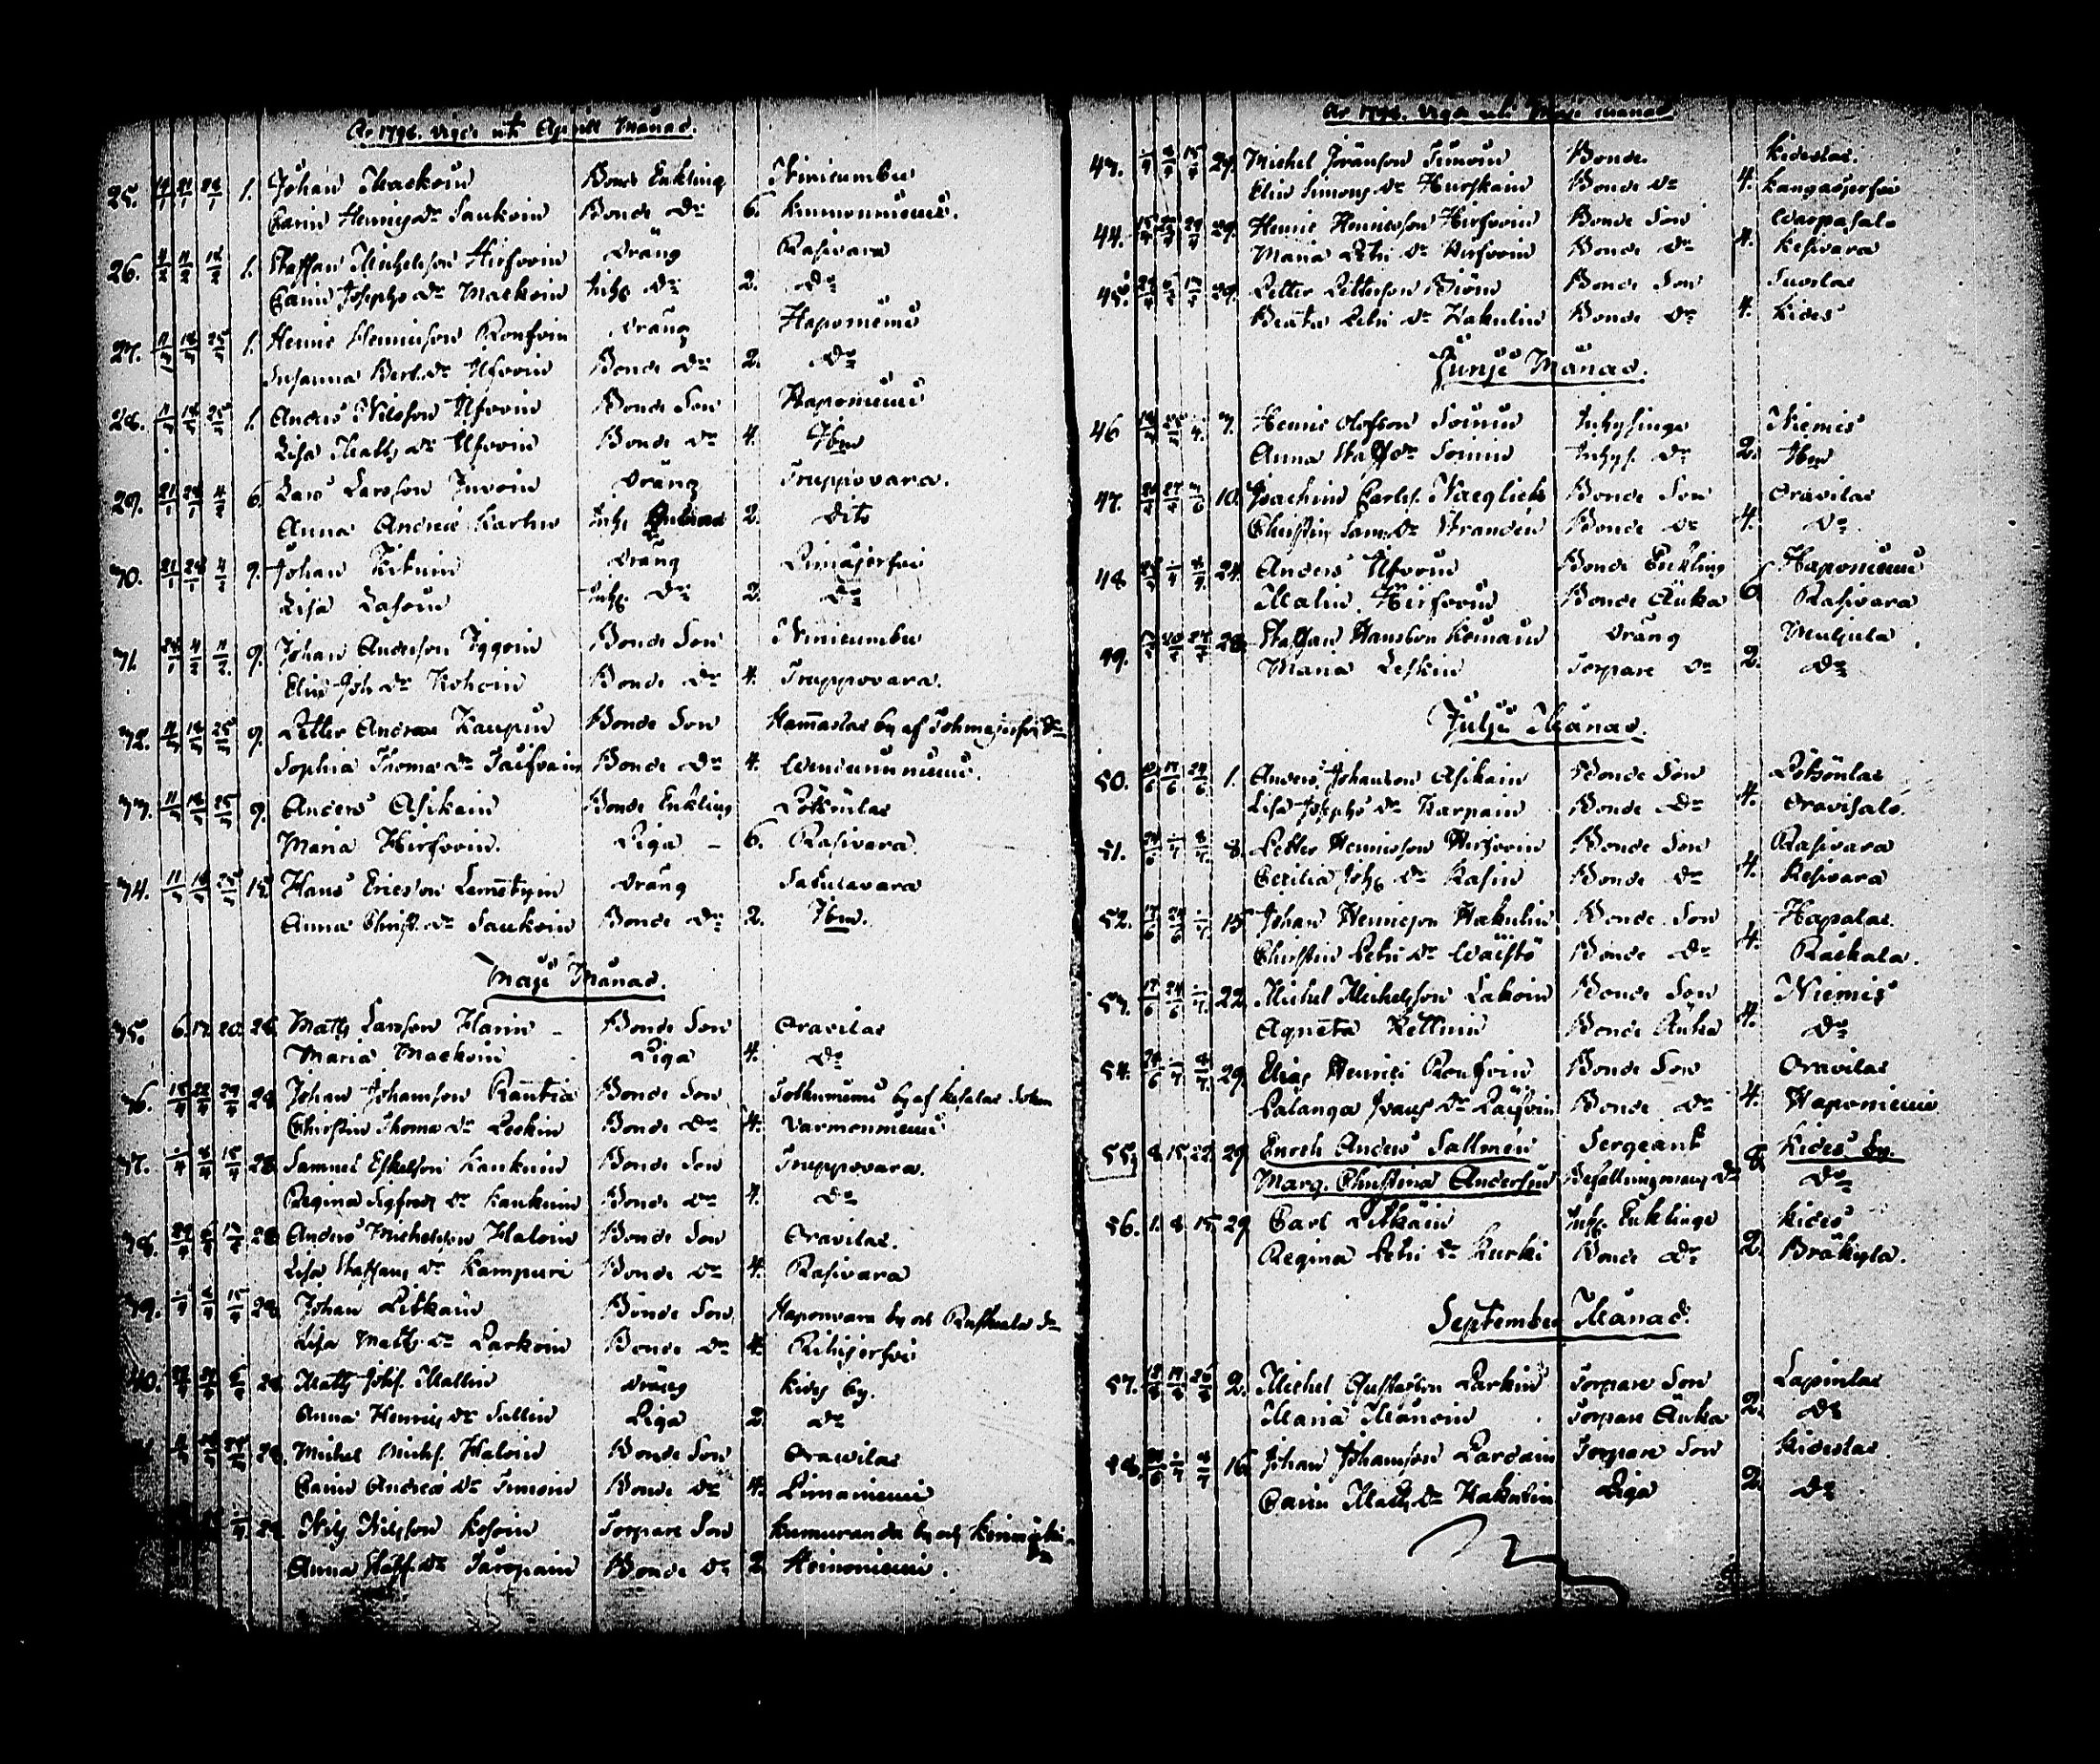 Ao 1796. vigde uti Aprill Månad.
25. 14/1 21/1 28/1 1. Johan Maekoin Bonde Enkling Ninieumbu
Carin Henrics Dr Saukoin Bonde Dr 6. Kummunniemi.
26. 4/2 11/2 18/2 1. Staffan Michelsson Hirfvoin Dräng Rasivara
Carin Josephs Dr Maekoin Inhs Dr 2. Do
27. 11/3 18/3 25/3 1. Henric Henricsson Ronfvin Dräng Haponiemi
Susanna Bert. Dr Ilfvoin Bonde Dr 2. Do
28. 11/3 18/3 25/3 1. Anders Nilsson Ilfvoin Bonde Son Haponiemi
Lisa Matts Dr Ilfvoin Bonde Dr 4. Ibm
29. 21/1 28/1 4/2 6. Lars Larsson Juvoin Dräng Truppovara.
Anna Andersé Karhu Inhs 2. Dito
30. 21/1 28/1 4/2 9. Johan Dräng Pimäjerfvi
Lisa Lasoin Inhs Dr 2. Do
31. 28/1 4/2 11/2 9. Johan Andersson Iggoin Bonde Son Ninieumbu
Elin Joh Dr Kohoin Bonde Dr 4. Truppovara.
32. 11/3 18/3 25/3 9. Petter Andreae Kaupin Bonde Son Hammaslax by af Tohmajerfvi Sn
Sophia Thomae Dr Päifväin Bonde Dr 4.
33. 11/3 18/3 25/3 9. Anders Asikain Bonde Enkling Pötsönlax
Maria Hirfvoin. Piga 6. Rasivara
34. 11/3 18/3 25/3 15. Hans Ericsson Lemetyin Dräng Satulavara
Anna Christ. Dr Saukoin Bonde Dr 2. Ibm.
Maji Månad.
35. 6. 13. 20. 28. Matts Larsson Harin Bonde Son Oravilax
Maria Maekoin Piga 4. Do
36. 15/4 22/4 29/4 28. Johan Johansson Rantia Bonde Son by af Kesälax Sokn
Christin Thomae Dr Leskin Bonde Dr 4. Varmonniemi
37. 1/4 8/4 15/4 28. Samuel Eskelsson Kaukuin Bonde Son Truppovara.
Regina Sigfreds Dr Kaukuin Bonde Dr 4. Do
38. 29/4 6/5 13/5 28. Anders Michelsson Haloin Bonde Son Oravilax.
Lisa Staffans Dr Kampuri Bonde Dr 4. Rasivara
39. 1/4 8/4 15/4 28. Johan Pitkäin Bonde Son Haponvara by och Ruskeala Sn
Lisa Matts Dr Parkoin Bonde Dr 4. Rihijerfvi
40. 28. Matts Johs. Mallin Dräng Kides by.
Anna Henrics Dr Sallin Piga 2. Do
28. Michel Michs. Haloin Bonde Son Oravilax
Carin Andreae Dr Simoin Bonde Dr 4. Pimäniemi
28. Nils Nilsson Kosoin Torpare Son by och Kerimäki Sn
Anna Staff. Dr Täropain Bonde Dr 2. Heinoniemi.
Ao 1796. Vigda uti Maji Månad
43. 1/4 8/4 15/4 29. Michel Jöransson Simoin Bonde Kideslax.
Elin Simons Dr Hurskain Bonde Dr 4. Kangasjerfvi
44. 15/4 22/4 29/4 29. Henric Henricsson Hirfvoin Bonde Son Warpasalo
Maria Petri Dr Hirfvoin Bonde Dr 4. Kesivara
45. 29/4 6/5 13/5 29. Petter Pettersson Björn Bonde Son Suorlax
Beata Petri Dr Hakulin Bonde Dr 4. Kides
Junji Månad.
46 7. Henric Olofsson Soinin Inhysinge Niemis
Anna Staffs Dr Soinin Inhys. Dr 2. Ibm
47. 10. Joachim Carls. Naeglick Bonde Son Oravilax
Christin Sam. Dr Stranden Bonde Dr 4. Do.
48 24. Anders Ilfvoin Bonde Enkling Haponiemi
Malin Hirfvoin Bonde Änka 6. Rasivara
49. 28. Staffan Hansson Keinäin Dräng Muljula
Maria Leskin Torpare Dr 2. Do
Julji Månad.
50. 10/6 17/6 24/6 1. Anders Johansson Asikain Bonde Son Pötsönlax
Lisa Josephs Dr Karpain Bonde Dr 4. Oravisalo.
51. 24/6 1/7 8/7 8. Petter Henricsson Hirfvoin Bonde Son Rasivara
Cecilia Johs Dr Kasin Bonde Dr 4. Kesivara
52. 17/6 24/6 1/7 15. Johan Henricsson Hakulin Bonde Son Hapalax.
Christin Petri Dr Wäistö Bonde Dr 4. Rackala.
53. 17/6 24/6 1/7 22. Michel Michelsson Lakoin Bonde Son Niemis
Agneta Kettuin Bonde Änka 4. Do
54. 24/6 1/7 8/7 29. Elias Henrici Ronfvin Bonde Son Oravilax
Palanga Ivans Dr Päifvin Bonde Dr 4. Haponiemi
55. 8. 15. 22. 29 Enoch Anders Sallmén Sergeant Kides by.
Marg. Christina Andersin Befallningsmans Dr 8. Do
56. 1. 8. 15. 29 Carl Pitkäin Inhs. Enklinge Kides
Regina Petri Dr Kurki Bonde Dr 2. Bräkylä.
September Månad.
57. 2. Michel Gustafsson Parkin Torpare Son Lapinlax
Maria Mänoin Torpare Änka 2. Do
58. 16. Johan Johansson Pardain Torpare Son Kideslax
Carin Matts Dr Hakulin Piga 2. Do